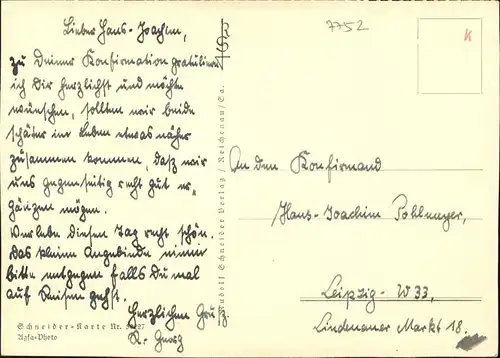 Lieber Hans-Joachim,
zu Deiner Konfirmation gratuliere
ich Dir herzlichst und möchte
wünschen, sollten wir beide
später im Leben etwas näher
zusammen kommen, daß wir
uns gegenseitig recht gut er-
gänzen mögen.
Verlebe diesen Tag recht schön.
Das kleine Angebinde nimm
bitte entgegen falls Du mal
auf Reisen gehst.
Herzlichen Gruß
K. Georg
Schneider-Karte Nr.
Agfa-Photo
Rudolf Schneider Verlag / Reichenau/Sa.
7752
K
An den Konfirmand
Hans-Joachim Pohlmeyer,
Leipzig - W 33,
Lindenauer Markt 18.